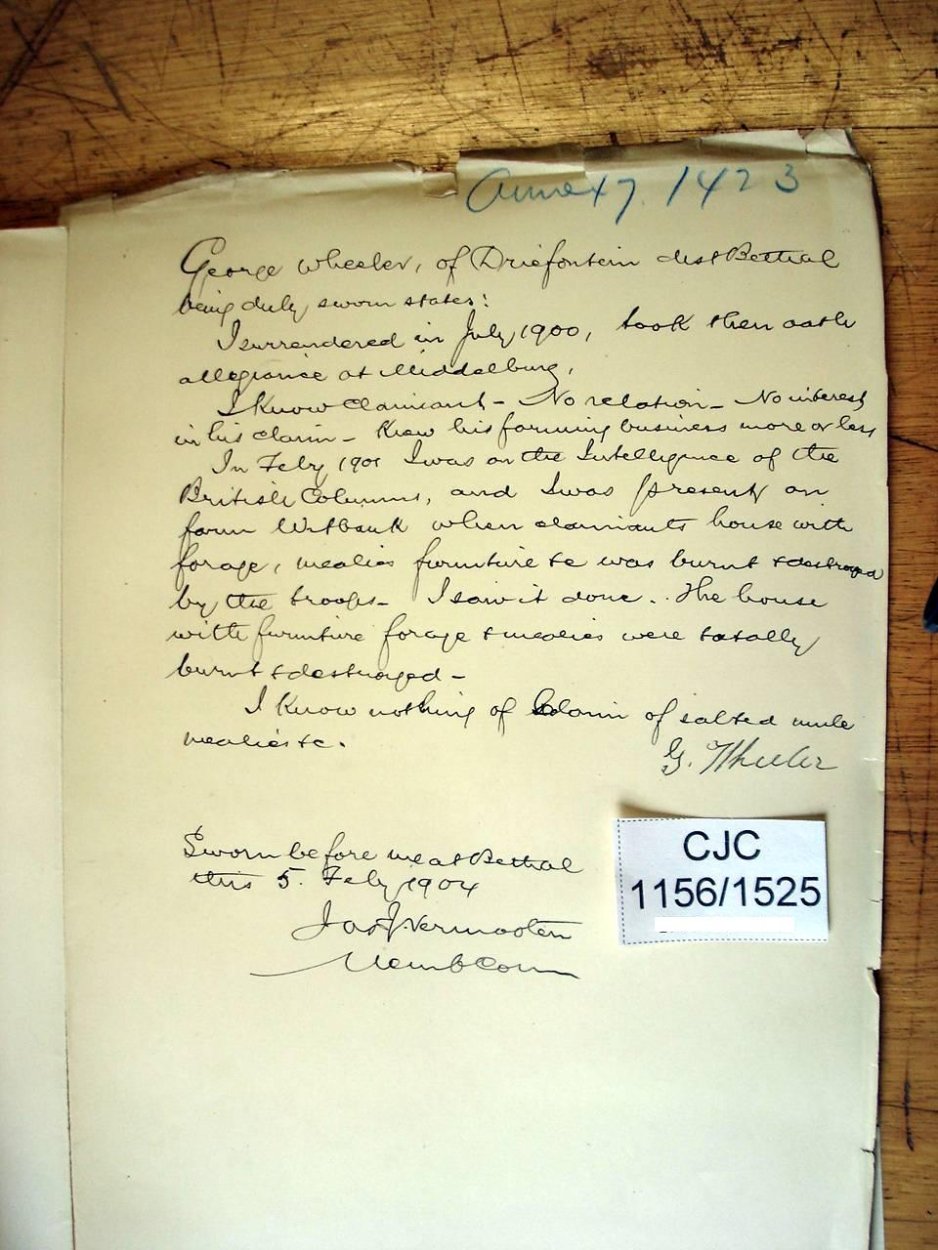 Annex 7. 1423
George Wheeler, of Driefontein dist Bethal
being duly sworn states:
I surrendered in July 1900, took then oath
allegiance at Middelburg,
I know claimant - No relation - No interest
in his claim - Know his farming business more or less
In Feby 1901 I was on the Intelligence of the
British Columns, and I was present on
farm Witbank when claimants house with
forage, mealies furniture &c was burnt & destroyed
by the troops - I saw it done. The house
with furniture forage & mealies were totally
burnt & destroyed -
I know nothing of claim of salted mule
mealies &c.
G. Wheeler
Sworn before me at Bethal
this 5. Feby 1904
Jas J Vermooten
Memb Com
CJC
1156/1525